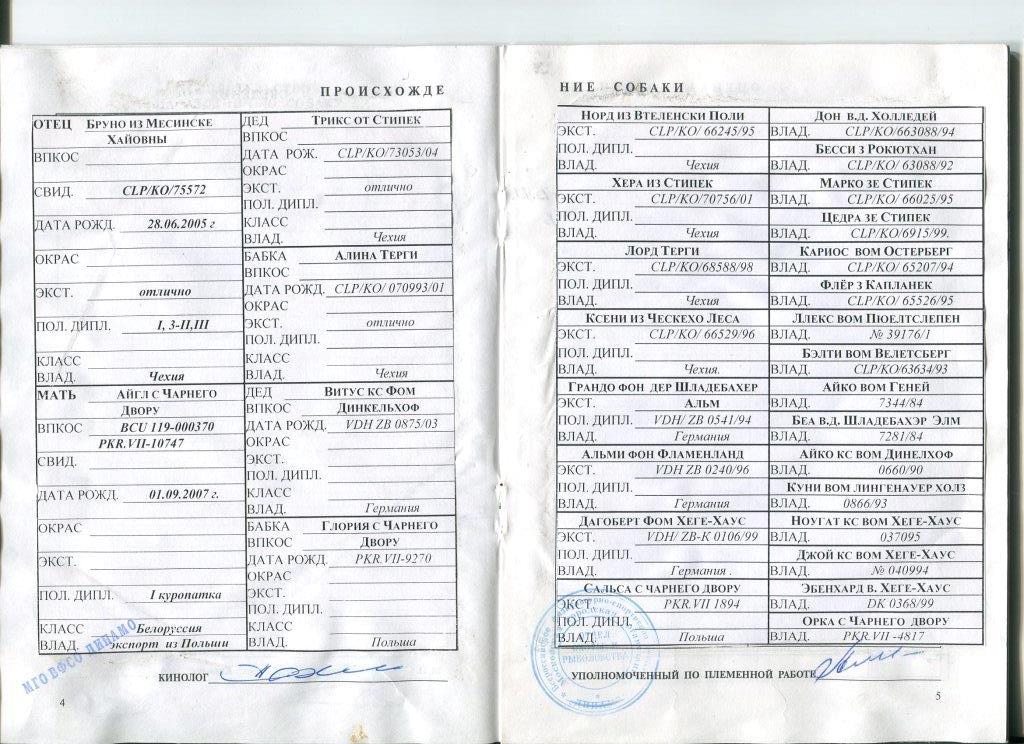 ПРОИСХОЖДЕ
ОТЕЦ БРУНО ИЗ МЕСИНСКЕ
ХАЙОВНЫ
ВПКОС
СВИД. CLP/KO/75572
ДАТА РОЖД. 28.06.2005 г
ОКРАС
ЭКСТ. отлично
ПОЛ. ДИПЛ. I, 3-II,III
КЛАСС
ВЛАД. Чехия
МАТЬ АЙГЛ С ЧАРНЕГО
ДВОРУ
ВПКОС BCU 119-000370
PKR.VII-10747
СВИД.
ДАТА РОЖД. 01.09.2007 г.
ОКРАС
ЭКСТ.
ПОЛ. ДИПЛ. I куропатка
КЛАСС Белоруссия
ВЛАД. экспорт из Польши
ДЕД ТРИКС ОТ СТИПЕК
ВПКОС
ДАТА РОЖ. CLP/KO/73053/04
ОКРАС
ЭКСТ. отлично
ПОЛ. ДИПЛ.
КЛАСС
ВЛАД. Чехия
БАБКА АЛИНА ТЕРГИ
ВПКОС
ДАТА РОЖД. CLP/KO/ 070993/01
ОКРАС
ЭКСТ. отлично
ПОЛ. ДИПЛ.
КЛАСС
ВЛАД. Чехия
ДЕД ВИТУС КС ФОМ
ВПКОС ДИНКЕЛЬХОФ
ДАТА РОЖД. VDH ZB 0875/03
ОКРАС
ЭКСТ.
ПОЛ. ДИПЛ.
КЛАСС
ВЛАД. Германия
БАБКА ГЛОРИЯ С ЧАРНЕГО
ВПКОС ДВОРУ
ДАТА РОЖД. PKR.VII-9270
ОКРАС
ЭКСТ.
ПОЛ. ДИПЛ.
КЛАСС
ВЛАД. Польша
МГО ВФСО ДИНАМО
КИНОЛОГ
4
НИЕ СОБАКИ
НОРД ИЗ ВТЕЛЕНСКИ ПОЛИ
ЭКСТ. CLP/KO/ 66245/95
ПОЛ. ДИПЛ.
ВЛАД. Чехия
ХЕРА ИЗ СТИПЕК
ЭКСТ. CLP/KO/70756/01
ПОЛ. ДИПЛ.
ВЛАД. Чехия
ЛОРД ТЕРГИ
ЭКСТ. CLP/KO/68588/98
ПОЛ. ДИПЛ.
ВЛАД. Чехия
КСЕНИ ИЗ ЧЕСКЕХО ЛЕСА
ЭКСТ. CLP/KO/ 66529/96
ПОЛ. ДИПЛ.
ВЛАД. Чехия.
ГРАНДО ФОН ДЕР ШЛАДЕБАХЕР
ЭКСТ. АЛЬМ
ПОЛ. ДИПЛ. VDH/ ZB 0541/94
ВЛАД. Германия
АЛЬМИ ФОН ФЛАМЕНЛАНД
ЭКСТ. VDH ZB 0240/96
ПОЛ. ДИПЛ.
ВЛАД. Германия
ДАГОБЕРТ ФОМ ХЕГЕ-ХАУС
ЭКСТ. VDH/ ZB-K 0106/99
ПОЛ. ДИПЛ.
ВЛАД. Германия .
САЛЬСА С ЧАРНЕГО ДВОРУ
ЭКСТ. PKR.VII 1894
ПОЛ. ДИПЛ.
ВЛАД. Польша
ДОН В.Д. ХОЛЛЕДЕЙ
ВЛАД. CLP/KO/663088/94
БЕССИ З РОКЮТХАН
ВЛАД. CLP/KO/ 63088/92
МАРКО ЗЕ СТИПЕК
ВЛАД. CLP/KO/ 66025/95
ЦЕДРА ЗЕ СТИПЕК
ВЛАД. CLP/KO/6915/99.
КАРИОС ВОМ ОСТЕРБЕРГ
ВЛАД. CLP/KO/ 65207/94
ФЛЁР З КАПЛАНЕК
ВЛАД. CLP/KO/ 65526/95
ЛЛЕКС ВОМ ПЮЕЛТСЛЕПЕН
ВЛАД. № 39176/1
БЭЛТИ ВОМ ВЕЛЕТСБЕРГ
ВЛАД. CLP/KO/63634/93
АЙКО ВОМ ГЕНЕЙ
ВЛАД. 7344/84
БЕА В.Д. ШЛАДЕБАХЭР ЭЛМ
ВЛАД. 7281/84
АЙКО КС ВОМ ДИНЕЛХОФ
ВЛАД. 0660/90
КУНИ ВОМ ЛИНГЕНАУЕР ХОЛЗ
ВЛАД. 0866/93
НОУГАТ КС ВОМ ХЕГЕ-ХАУС
ВЛАД. 037095
ДЖОЙ КС ВОМ ХЕГЕ-ХАУС
ВЛАД. № 040994
ЭБЕНХАРД В. ХЕГЕ-ХАУС
ВЛАД. DK 0368/99
ОРКА С ЧАРНЕГО ДВОРУ
ВЛАД. PKR.VII -4817
РЫБОЛОВСТВА
УПОЛНОМОЧЕННЫЙ ПО ПЛЕМЕННОЙ РАБОТЕ
5